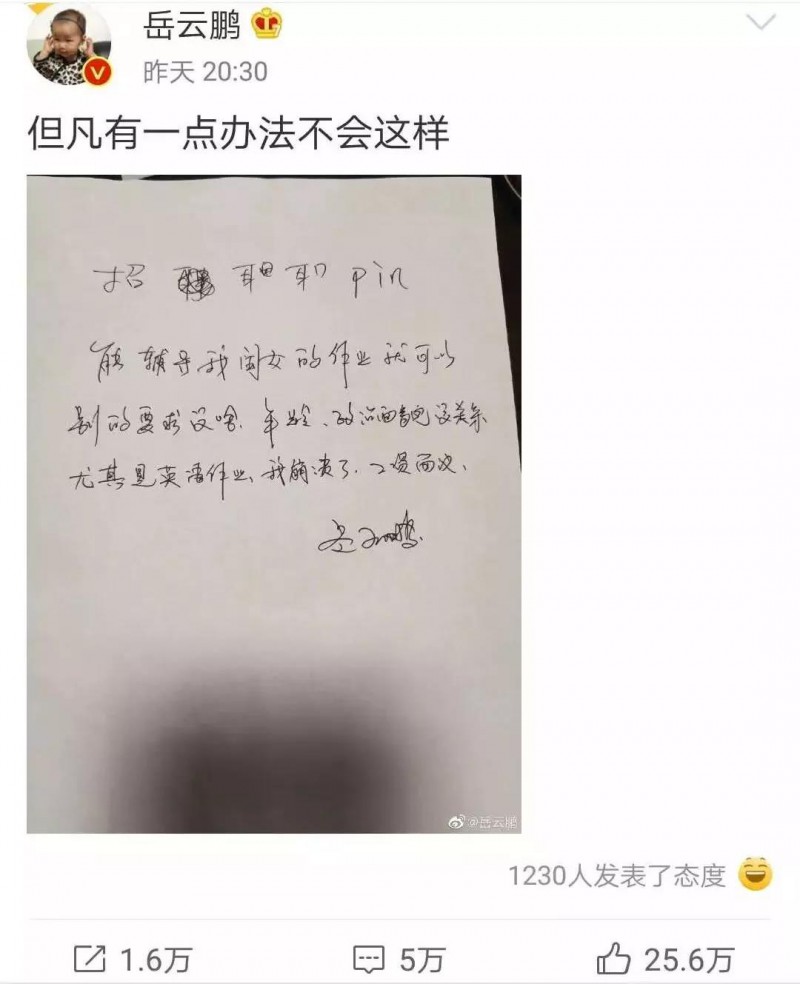 岳云鹏
昨天 20:30
但凡有一点办法不会这样
招 pin
能辅导我闺女的作业就可以
别的要求没啥.年龄、政治面貌没关系
尤其是英语作业、我崩溃了.工资面议、
岳云鹏
@岳云鹏
1230人发表了态度
1.6万 5万 25.6万